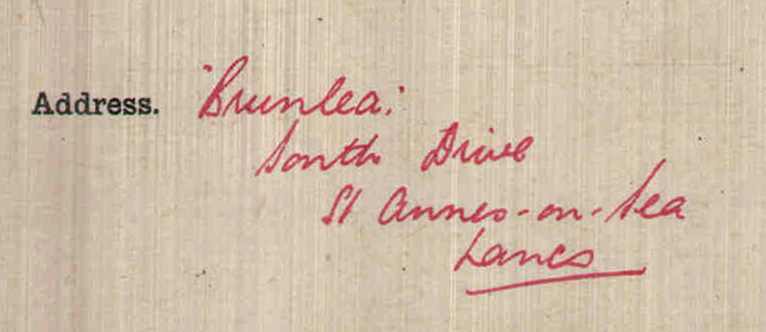 Address. "Brunlea."
South Drive
St Annes-on-Sea
Lancs